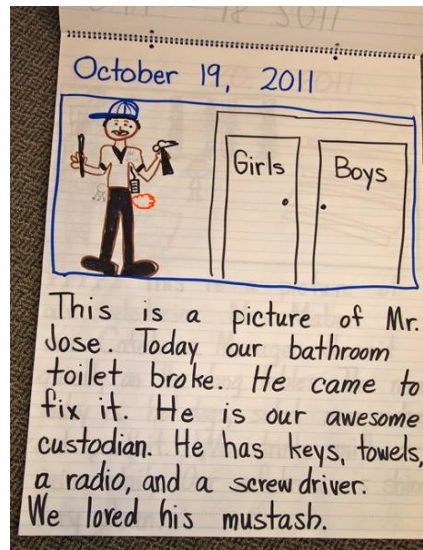 October 19, 2011
Girls
Boys
This is a picture of Mr.
Jose. Today our bathroom
toilet broke. He came to
fix it. He is our awesome
custodian. He has keys, towels,
a radio, and a screwdriver.
We loved his mustash.